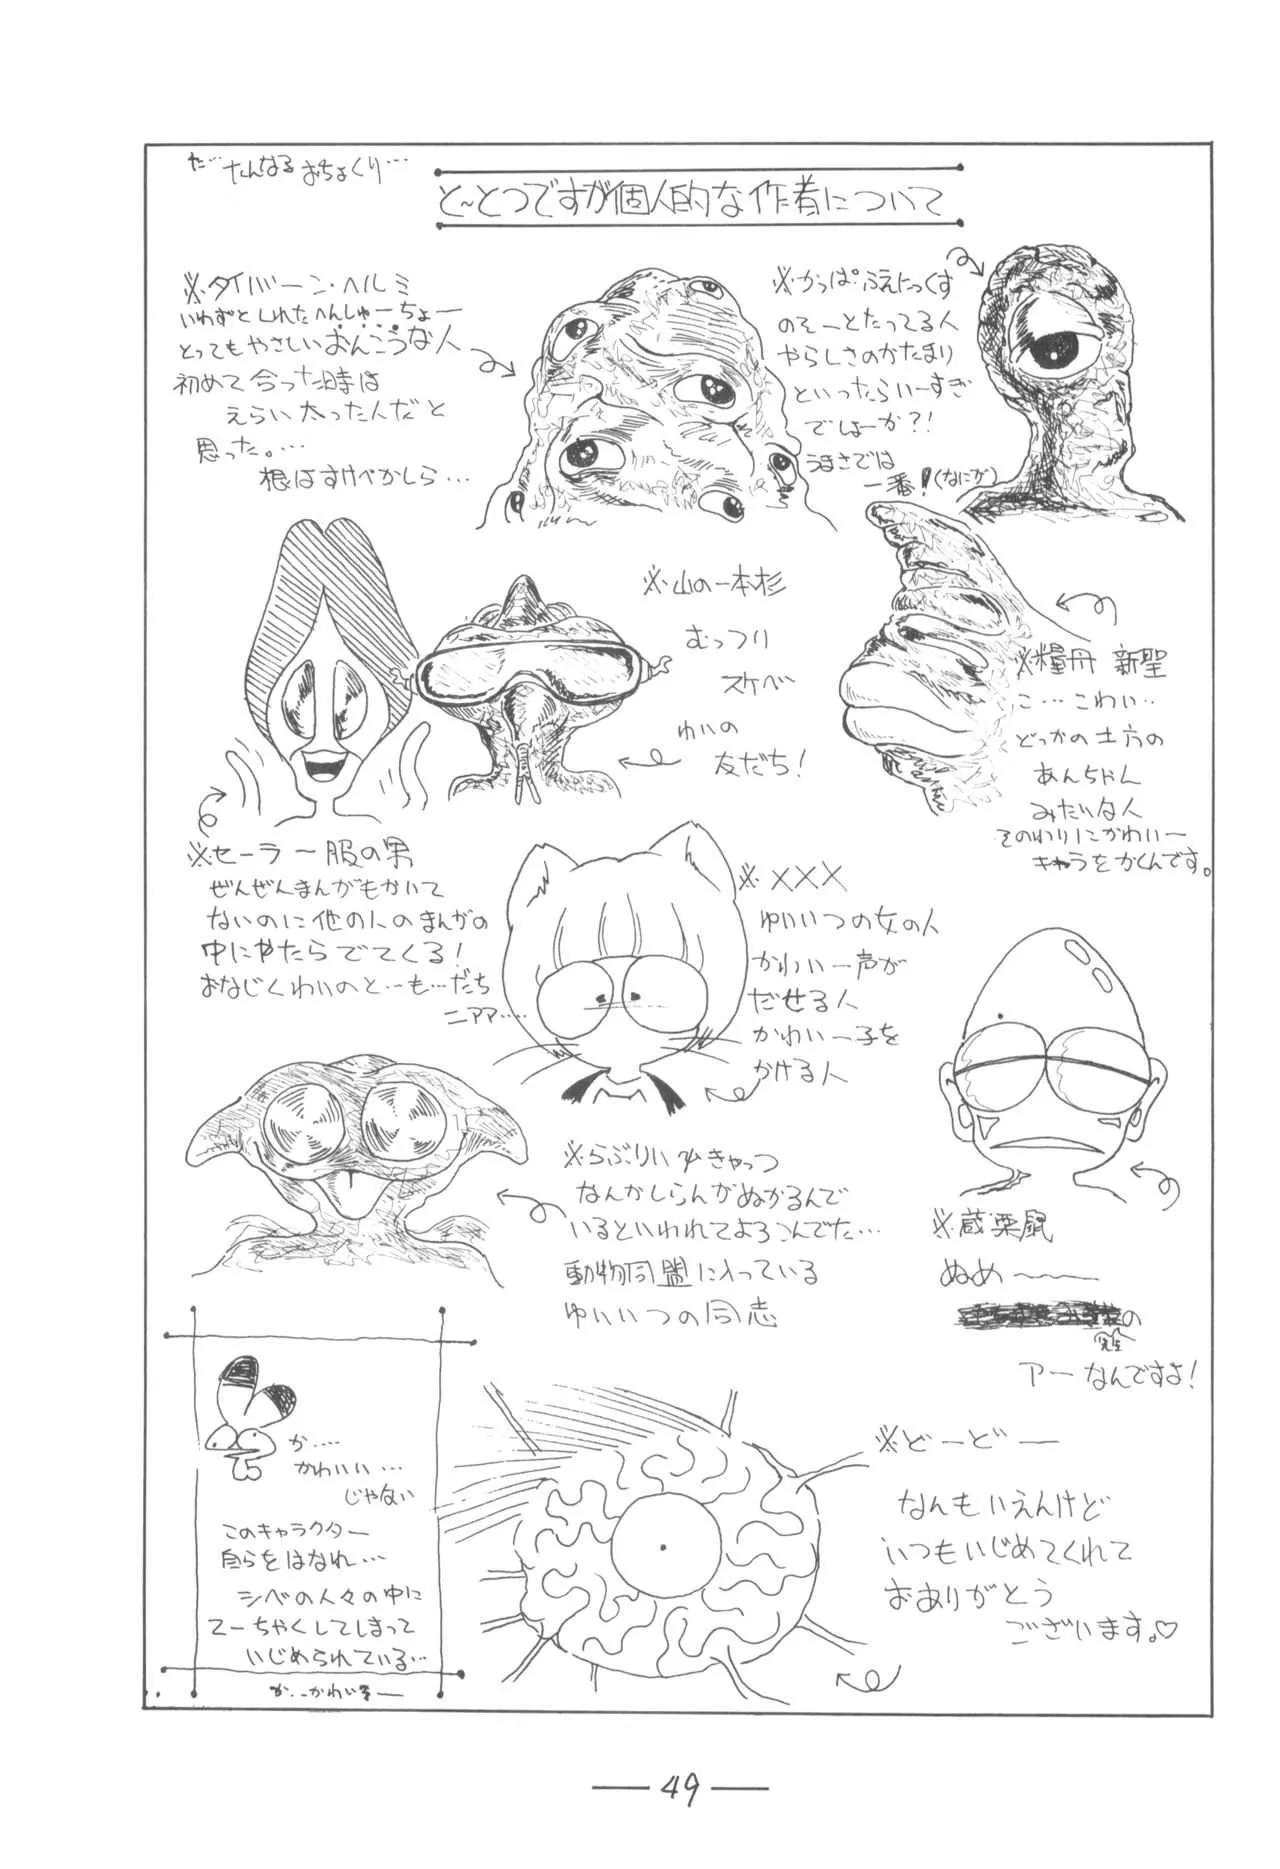 だ…たんなるおちょくり…
と~とつですが個人的な作者について
※タイバーン・ヘルミ
いわずとしれたへんしゅーちょー
とってもやさしいおんこうな人
初めて合った時は
えらい太ったんだと
思った。…
根はすけべかしら…
※かっぱふえにっくす
のそーとたってる人
やらしさのかたまり
といったらいーすぎ
でしょーか?!
うまさでは
一番!(なにが)
※山の一本杉
むっつり
スケベ
ゆいの
友だち!
※糧丹 新聖
こ…こわい‥
どっかの土方の
あんちゃん
みたいな人
そのわりにかわいー
キャラをかくんです。
※セーラー服の男
ぜんぜんまんがもかいて
ないのに他の人のまんがの
中にやたらでてくる!
おなじくわいのと…も…だち
ニアア……
※×××
ゆいいつの女の人
かわいー声が
だせる人
かわいー子を
かける人
※らぶりい きゃっつ
なんかしらんがぬかるんで
いるといわれてよろこんでた…
動物同盟に入っている
ゆいいつの同志
※蔵栗鼠
ぬめ〜〜
の
先生
アーなんですよ!
か‥‥
かわいい…
じゃない
このキャラクター
自らをはなれ…
シベの人々の中に
てーちゃくしてしまって
いじめられている…
か‥かわい
※どーどー
なんもいえんけど
いつもいじめてくれて
おありがとう
ございます。♡
— 49 —